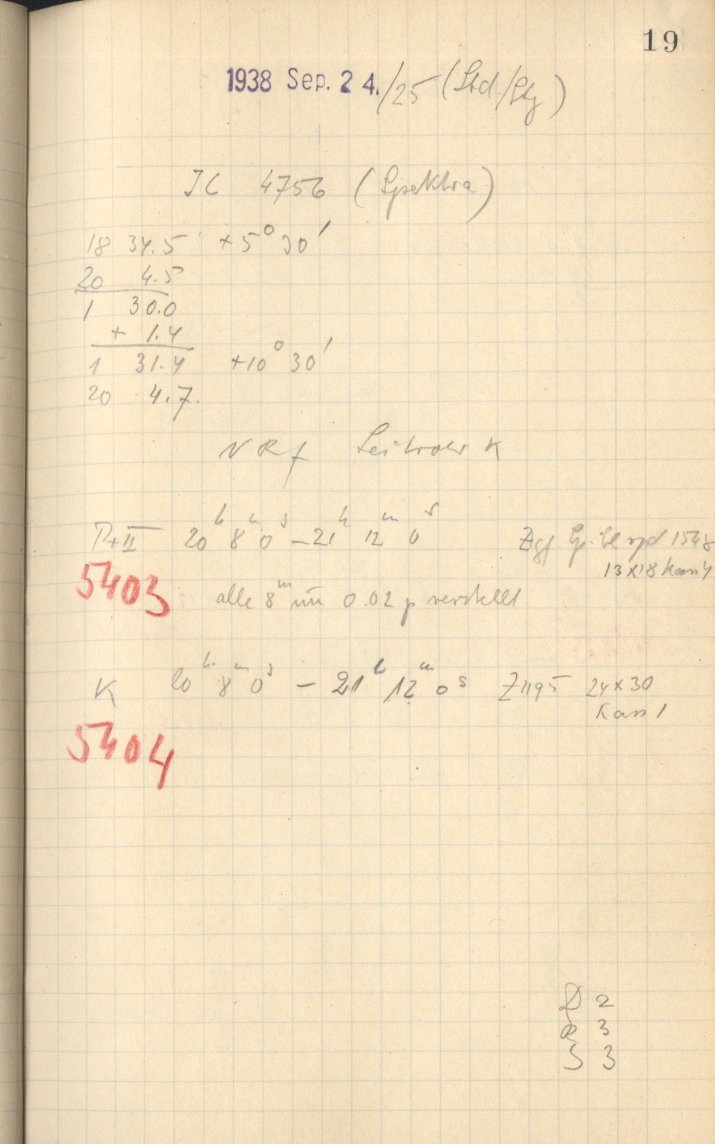 19
1938 Sep. 24./25 (Std./Stg)
IC 4756 (Spektra)
18 34.5 +5° 30'
20 4.5
1 30.0
+ 1.4
1 31.4 +10° 30'
20 4.7.
NRf Leitrohr K
P+II 20h 8m 0s – 21h 12m 0s
13x18 Kass 4
5403
alle 8m um 0.02 p verstellt
K 20h 8m 0s – 21h 12m 0s Z 1195 24x30
Kass 1
5404
D 2
R 3
S 3